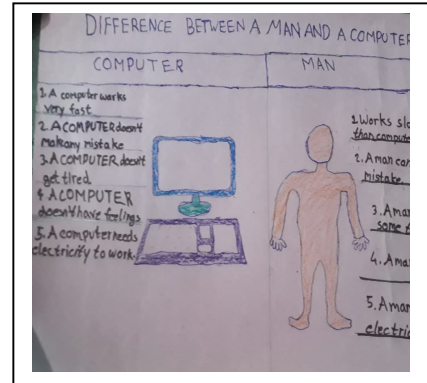 DIFFERENCE BETWEEN A MAN AND A COMPUTER
COMPUTER
MAN
1. A computer works
very fast
2. A COMPUTER doesn't
makany mistake
3. A COMPUTER doesn't
get tired
4. A COMPUTER
doesn't have feelings
5. A computer needs
electricity to work.
1. Works
than
2. A man can
mistake
3. A man
some
4. A man
5. A man